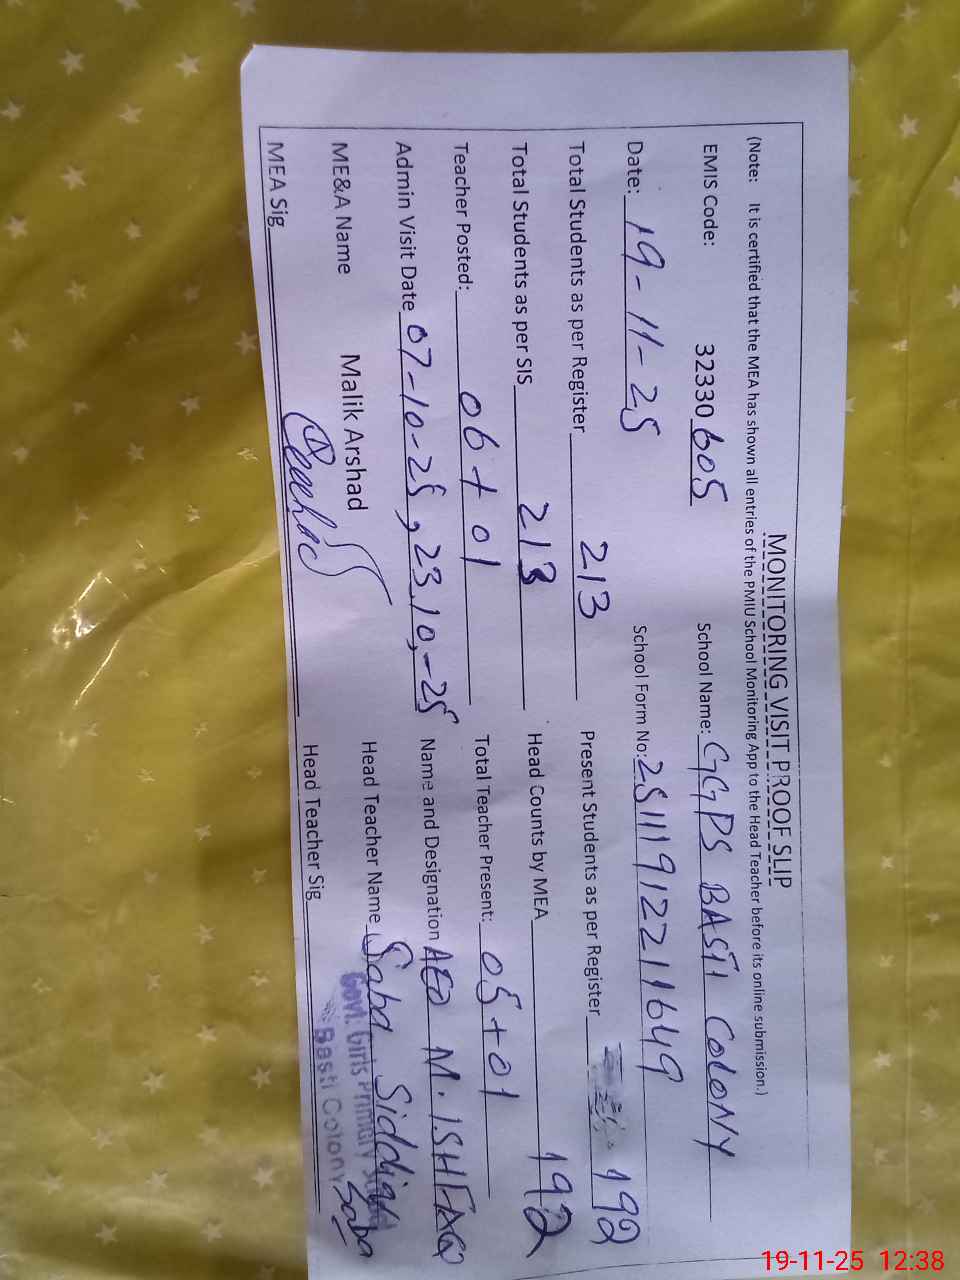 MONITORING VISIT PROOF SLIP
(Note: It is certified that the MEA has shown all entries of the PMIU School Monitoring App to the Head Teacher before its online submission.)
EMIS Code: 32330605 School Name: GGPS BASTI COLONY
Date: 19-11-25 School Form No: 25111912211649
Total Students as per Register 213 Present Students as per Register 192
Total Students as per SIS 213 Head Counts by MEA 192
Teacher Posted: 06+01 Total Teacher Present: 05+01
Admin Visit Date 07-10-25, 23.10,-25 Name and Designation AEO M. ISHFAQ
ME&A Name Malik Arshad Head Teacher Name Saba Siddiqa
MEA Sig Head Teacher Sig Saba
Govt. Girls Primary
Basti Colony
19-11-25 12:38